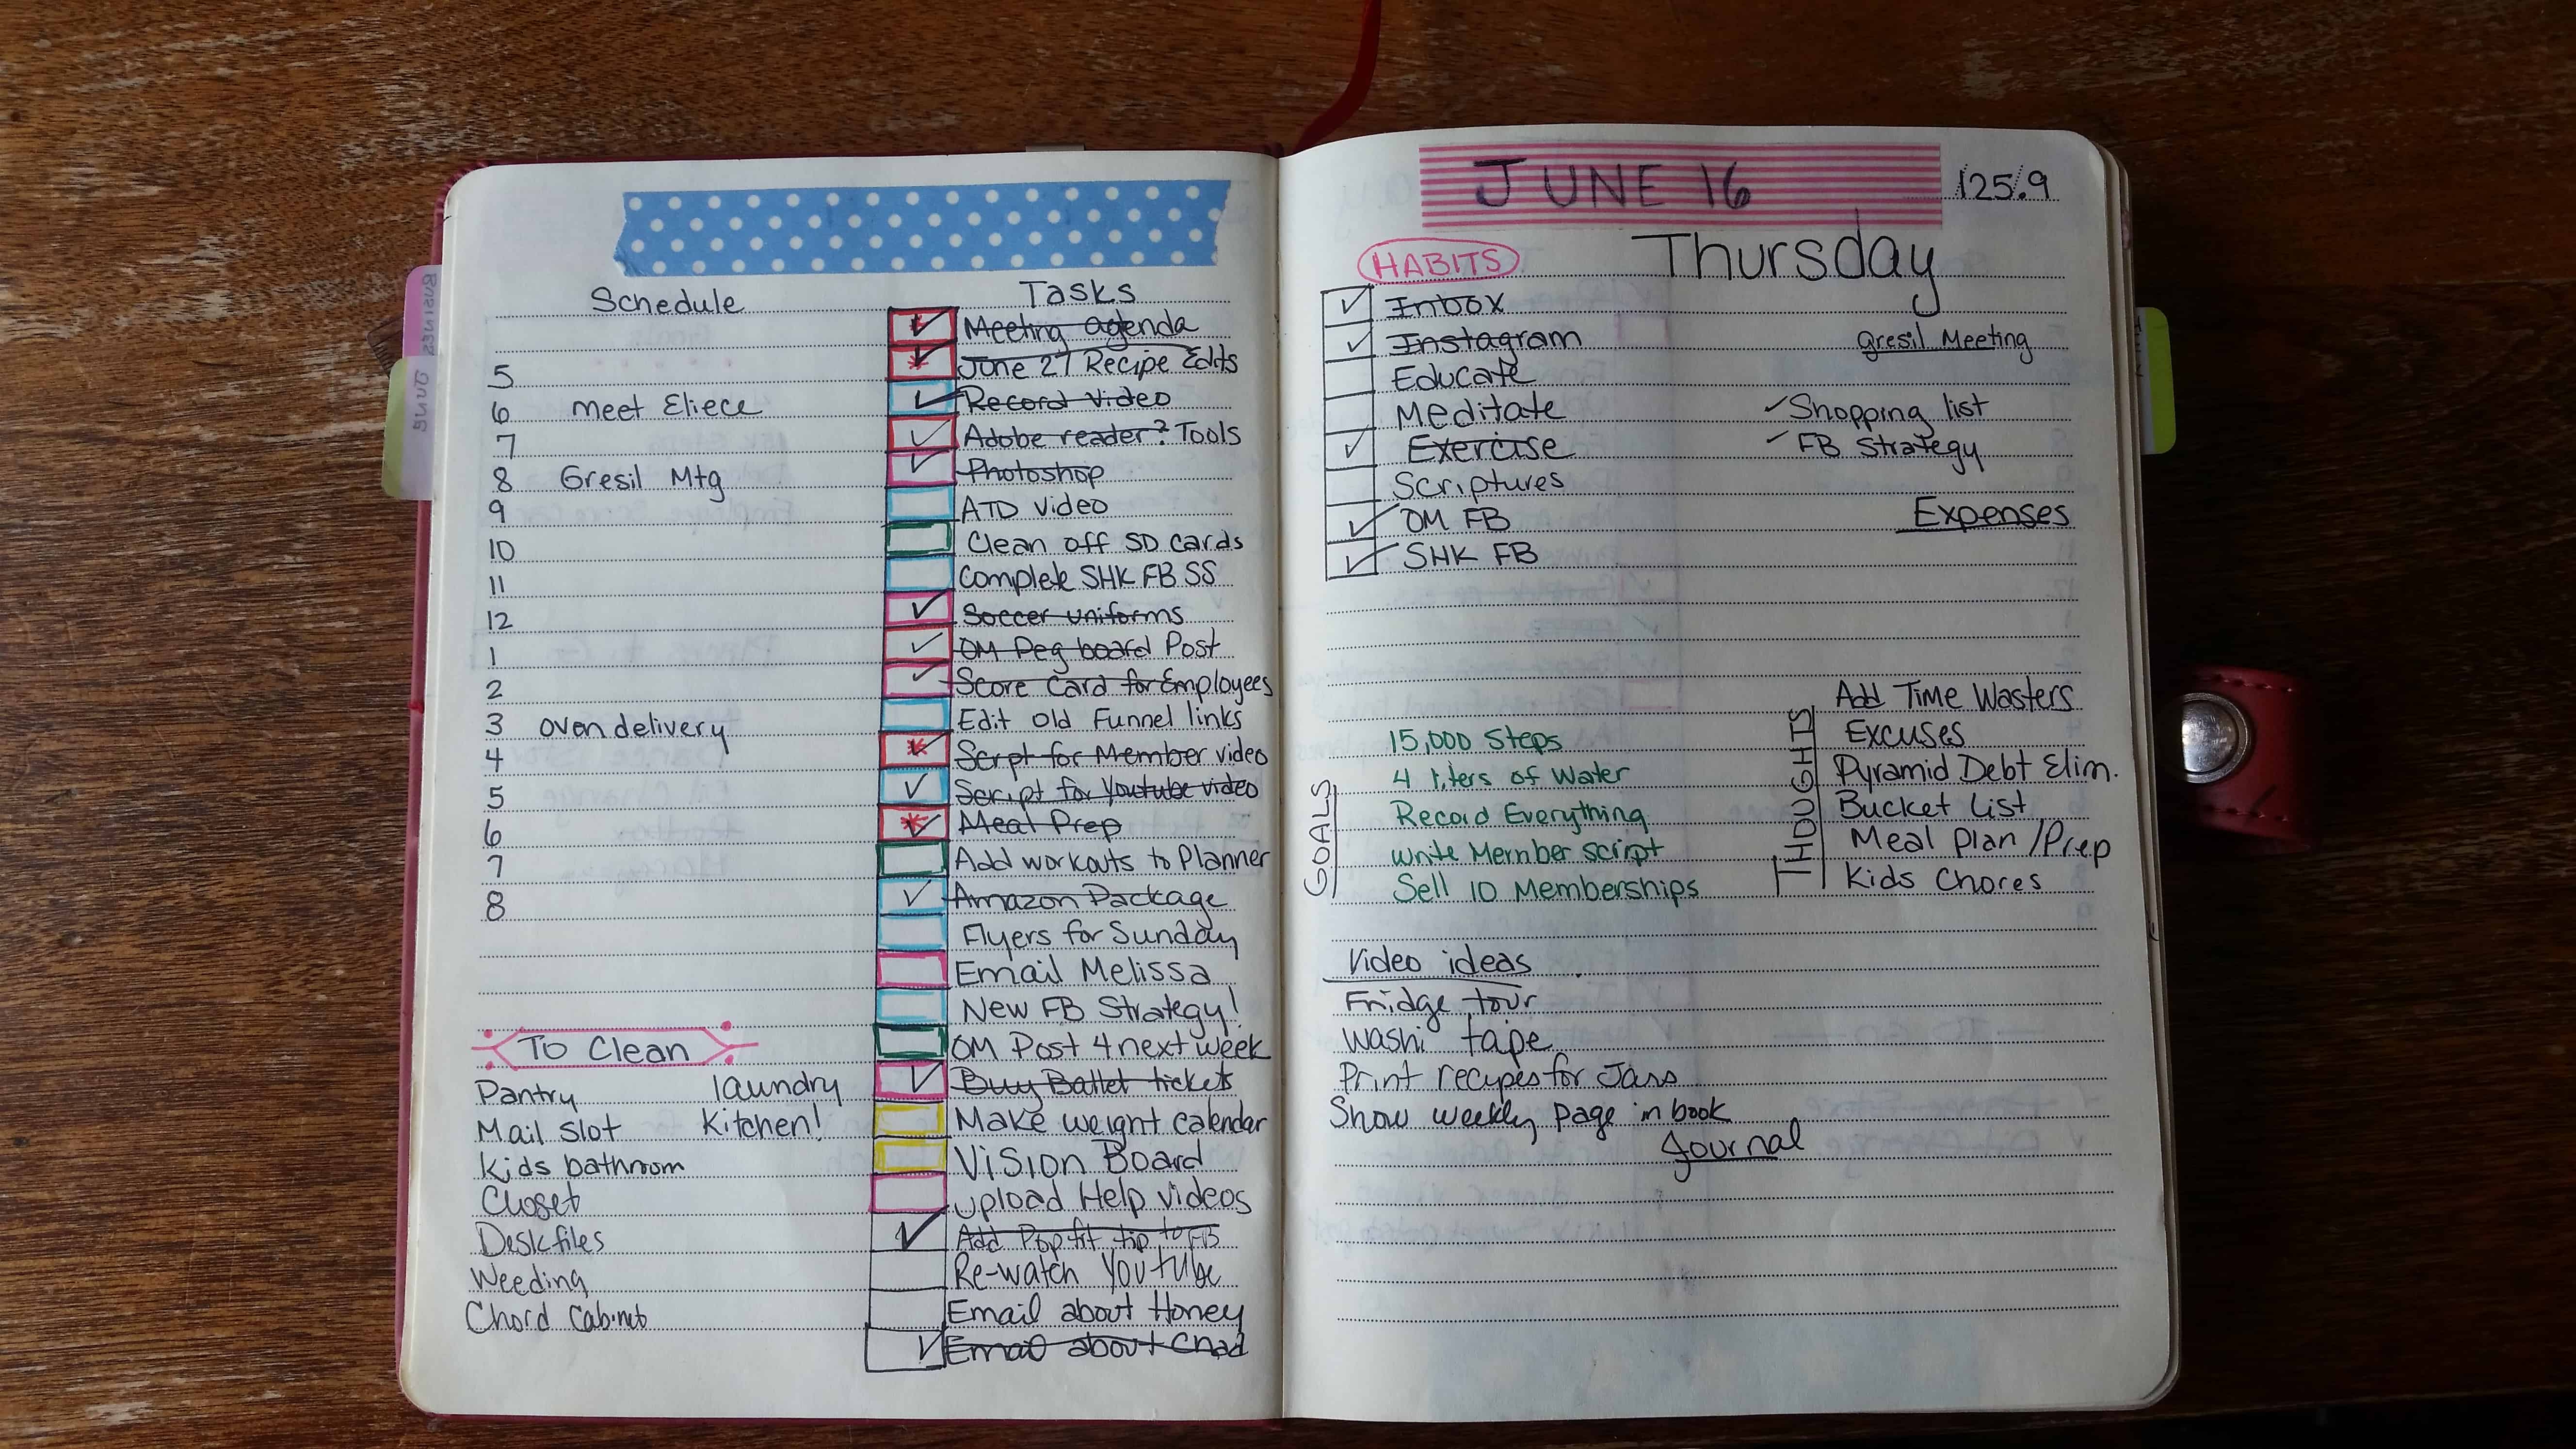 Schedule
5
6 meet Eliece
7
8 Gresil Mtg
9
10
11
12
1
2
3 oven delivery
4
5
6
7
8
To Clean
Pantry laundry
Mail slot Kitchen!
Kids bathroom
Closet
Desk files
Weeding
Chord Cabinet
Tasks
Meeting agenda
June 27 Recipe Edits
Record Video
Adobe reader? Tools
Photoshop
ATD video
Clean off SD cards
Complete SHK FB SS
Soccer uniforms
OM Peg board Post
Score Card for Employees
Edit old Funnel links
Script for Member video
Script for Youtube video
Meal Prep
Add workouts to Planner
Amazon Package
Flyers for Sunday
Email Melissa
New FB Strategy!
OM Post 4 next week
Buy Ballet tickets
Make weight calendar
Vision Board
upload Help videos
Add tip to FB
Re-watch Youtube
Email about Honey
Email about Chad
Business
JUNE 16
125.9
Thursday
HABITS
Inbox
Instagram
Educate
Meditate
Exercise
Scriptures
OM FB
SHK FB
Gresil Meeting
Shopping list
FB Strategy
Expenses
GOALS
15,000 Steps
4 liters of Water
Record Everything
write Member script
Sell 10 Memberships
THOUGHTS
Add Time Wasters
Excuses
Pyramid Debt Elim.
Bucket List
Meal Plan/Prep
Kids Chores
Video ideas
Fridge tour
Washi tape
Print recipes for Jars
Show weekly page in book
Journal